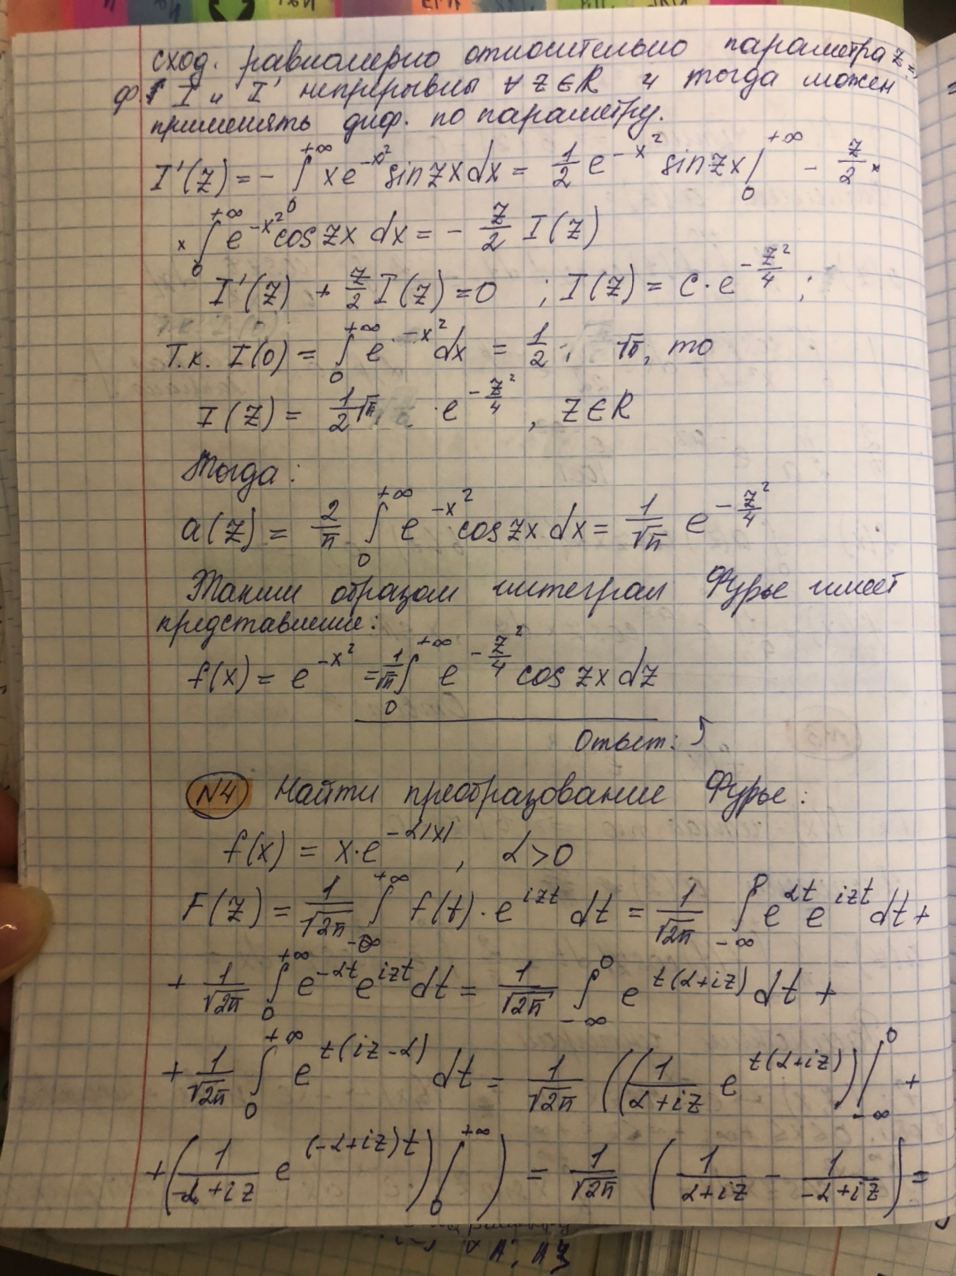 сход. равномерно относительно параметра z ⇒
ф. I и I' непрерывны ∀ z ∈ R и тогда можем
применять диф. по параметру.
I'(z) = - ∫₀^{+∞} x e^{-x²} sin zx dx = 1/2 e^{-x²} sin zx |₀^{+∞} - z/2 ×
× ∫₀^{+∞} e^{-x²} cos zx dx = - z/2 I(z)
I'(z) + z/2 I(z) = 0 ; I(z) = c · e^{-z²/4} ;
Т.к. I(0) = ∫₀^{+∞} e^{-x²} dx = 1/2 · √π, то
I(z) = 1/2 √π · e^{-z²/4}, z ∈ R
Тогда:
a(z) = 2/π ∫₀^{+∞} e^{-x²} cos zx dx = 1/√π e^{-z²/4}
Таким образом интеграл Фурье имеет
представление:
f(x) = e^{-x²} = 1/√π ∫₀^{+∞} e^{-z²/4} cos zx dz
Ответ:
N4 Найти преобразование Фурье:
f(x) = x · e^{-α|x|}, α > 0
F(z) = 1/√2π ∫_{-∞}^{+∞} f(t) · e^{izt} dt = 1/√2π ∫_{-∞}^{0} e^{αt} e^{izt} dt +
+ 1/√2π ∫₀^{+∞} e^{-αt} e^{izt} dt = 1/√2π ∫_{-∞}^{0} e^{t(α+iz)} dt +
+ 1/√2π ∫₀^{+∞} e^{t(iz-α)} dt = 1/√2π ((1/(α+iz) e^{t(α+iz)}) |_{-∞}^{0} +
+ (1/(-α+iz) e^{(-α+iz)t}) |₀^{+∞}) = 1/√2π (1/(α+iz) - 1/(-α+iz)) =